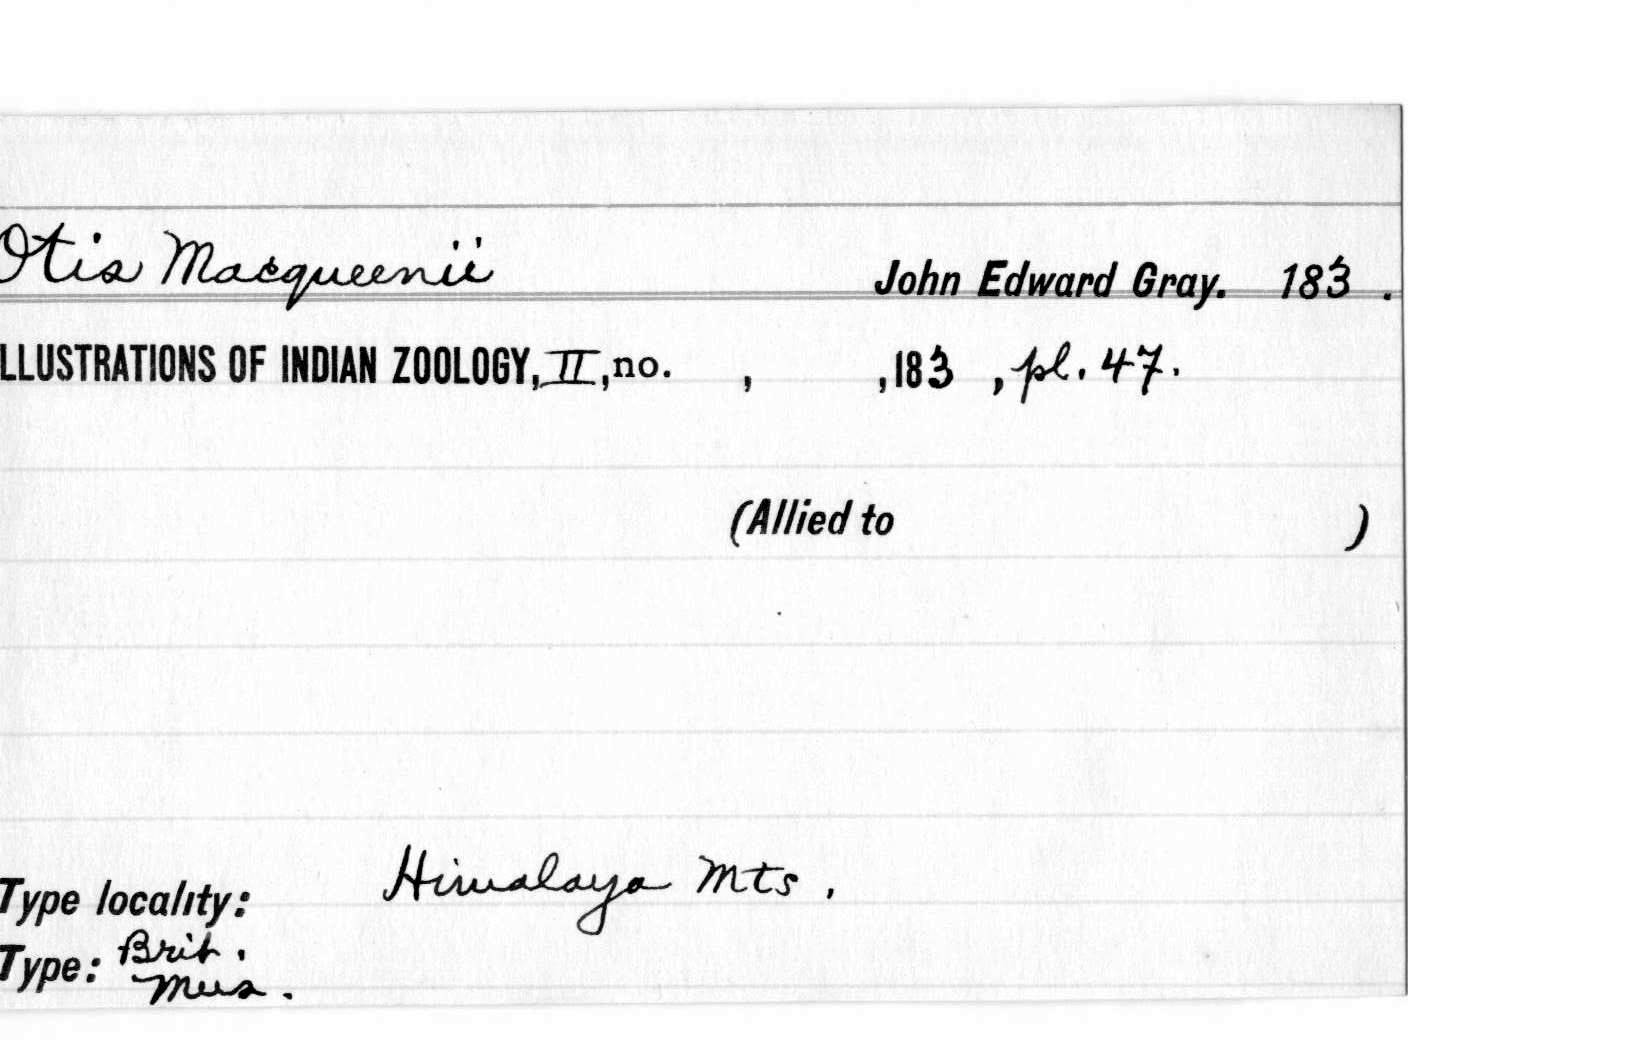 Otis Macqueenii John Edward Gray. 183 .
LLUSTRATIONS OF INDIAN ZOOLOGY, II, no. , , 183 , pl. 47.
(Allied to )
Type locality: Himalaya Mts.
Type: Brit.
Mus.